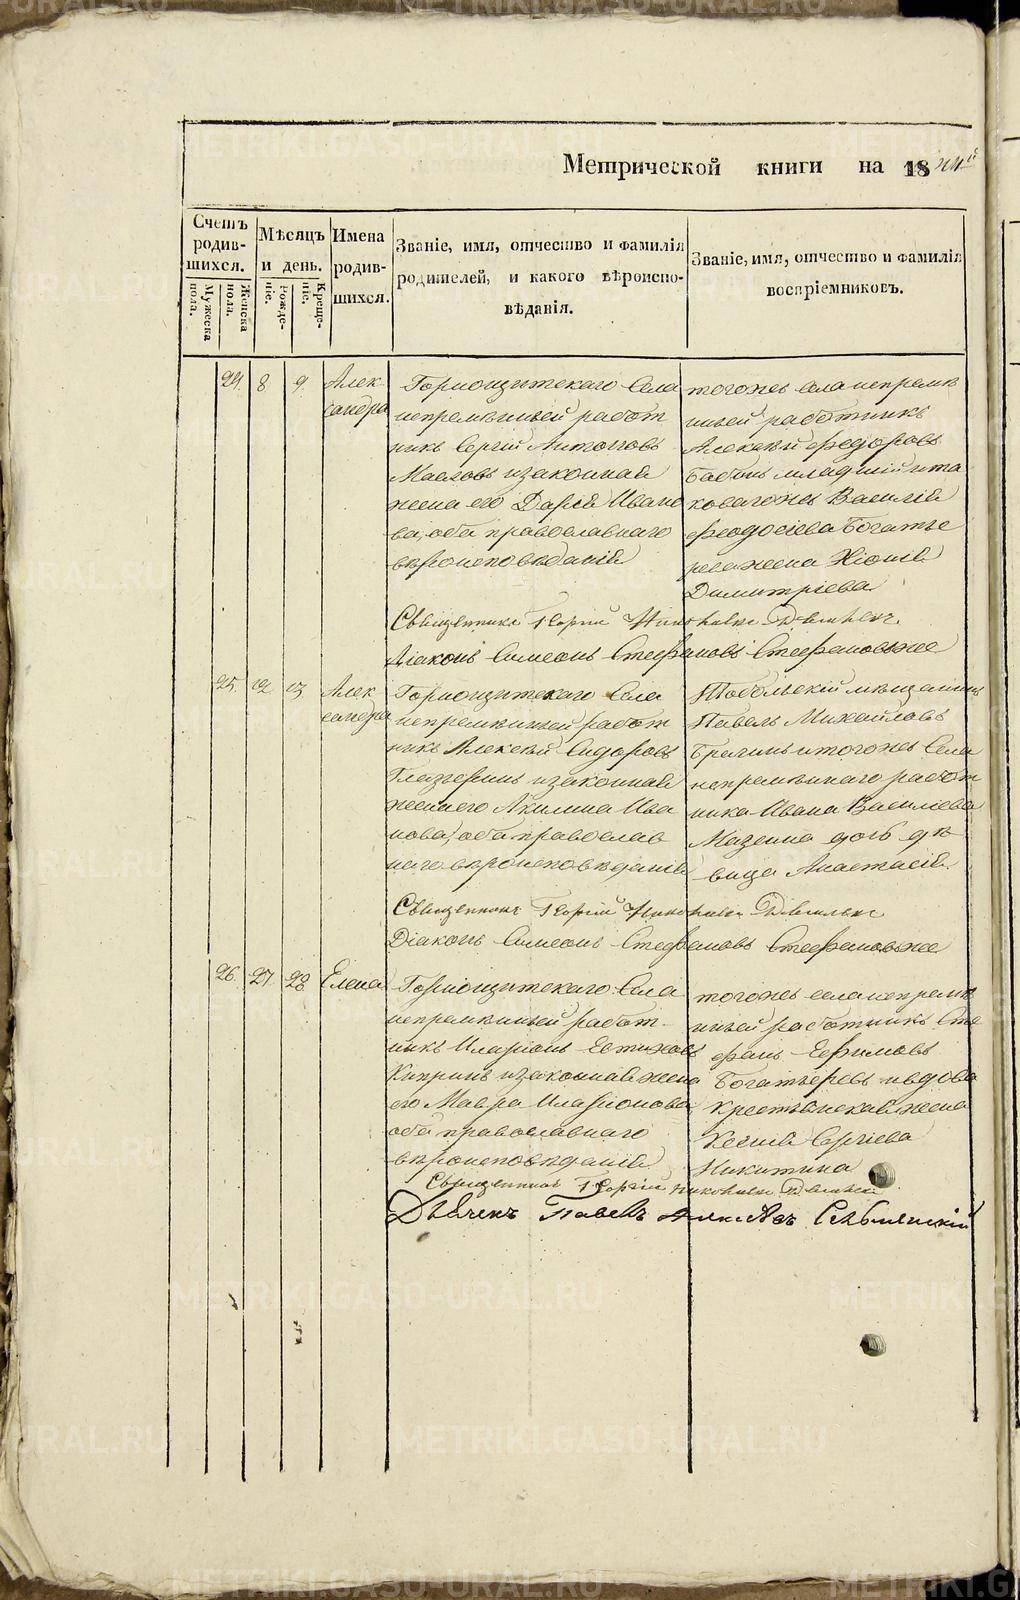 METRIKI.GASO-URAL.RU
Метрической книги на 18
Счетъ родив-шихся.
Мужеска пола.
Женска пола.
Мѣсяцъ и день.
Рожде-ніе.
Креще-ніе.
Имена родив-шихся.
Званіе, имя, отчество и фамилія родителей, и какого вѣроиспо-вѣданія.
Званіе, имя, отчество и фамилія воспріемниковъ.
24. 8 9. Алек-
сандра
Горнощитскаго Села
непремѣнный работ
никъ Сергій Антоновъ
Масловъ и законная
жена его Дарья Ивано
ва, оба православнаго
вѣроисповѣданія
тогоже села непремѣ
нный работникъ
Алексѣй Федоровъ
Бабинъ младшій и та
коваго же Василія
Феодосіева Богаты
рева жена Хіонія
Димитріева
Священникъ Георгій
Діаконъ Симеонъ Стефановъ Стефановъ же
25. 12. 13. Алек
сандра
Горнощитскаго Села
непремѣнный работ
никъ Алексѣй Сидоровъ
Глазеринъ и законная
жена его Акилина Ива
нова, оба православ
наго вѣроисповѣданія
Тобольскій мѣщанинъ
Павелъ Михайловъ
и тогоже Села
непремѣннаго работ
ника Ивана Василіева
Мазеина дочь дѣ
вица Анастасія
Священникъ Георгій
Діаконъ Симеонъ Стефановъ Стефановъ же
26. 27. 28. Елена
Горнощитскаго Села
непремѣнный работ-
никъ Иларіонъ
Кипринъ и законная жена
его Мавра Иларіонова
оба православнаго
вѣроисповѣданія
тогоже села непремѣ
нный работникъ Сте
фанъ Ефимовъ
Богатыревъ и вдова
крестьянская жена
Ксенія Сергіева
Никитина
Священникъ Георгій
Павелъ